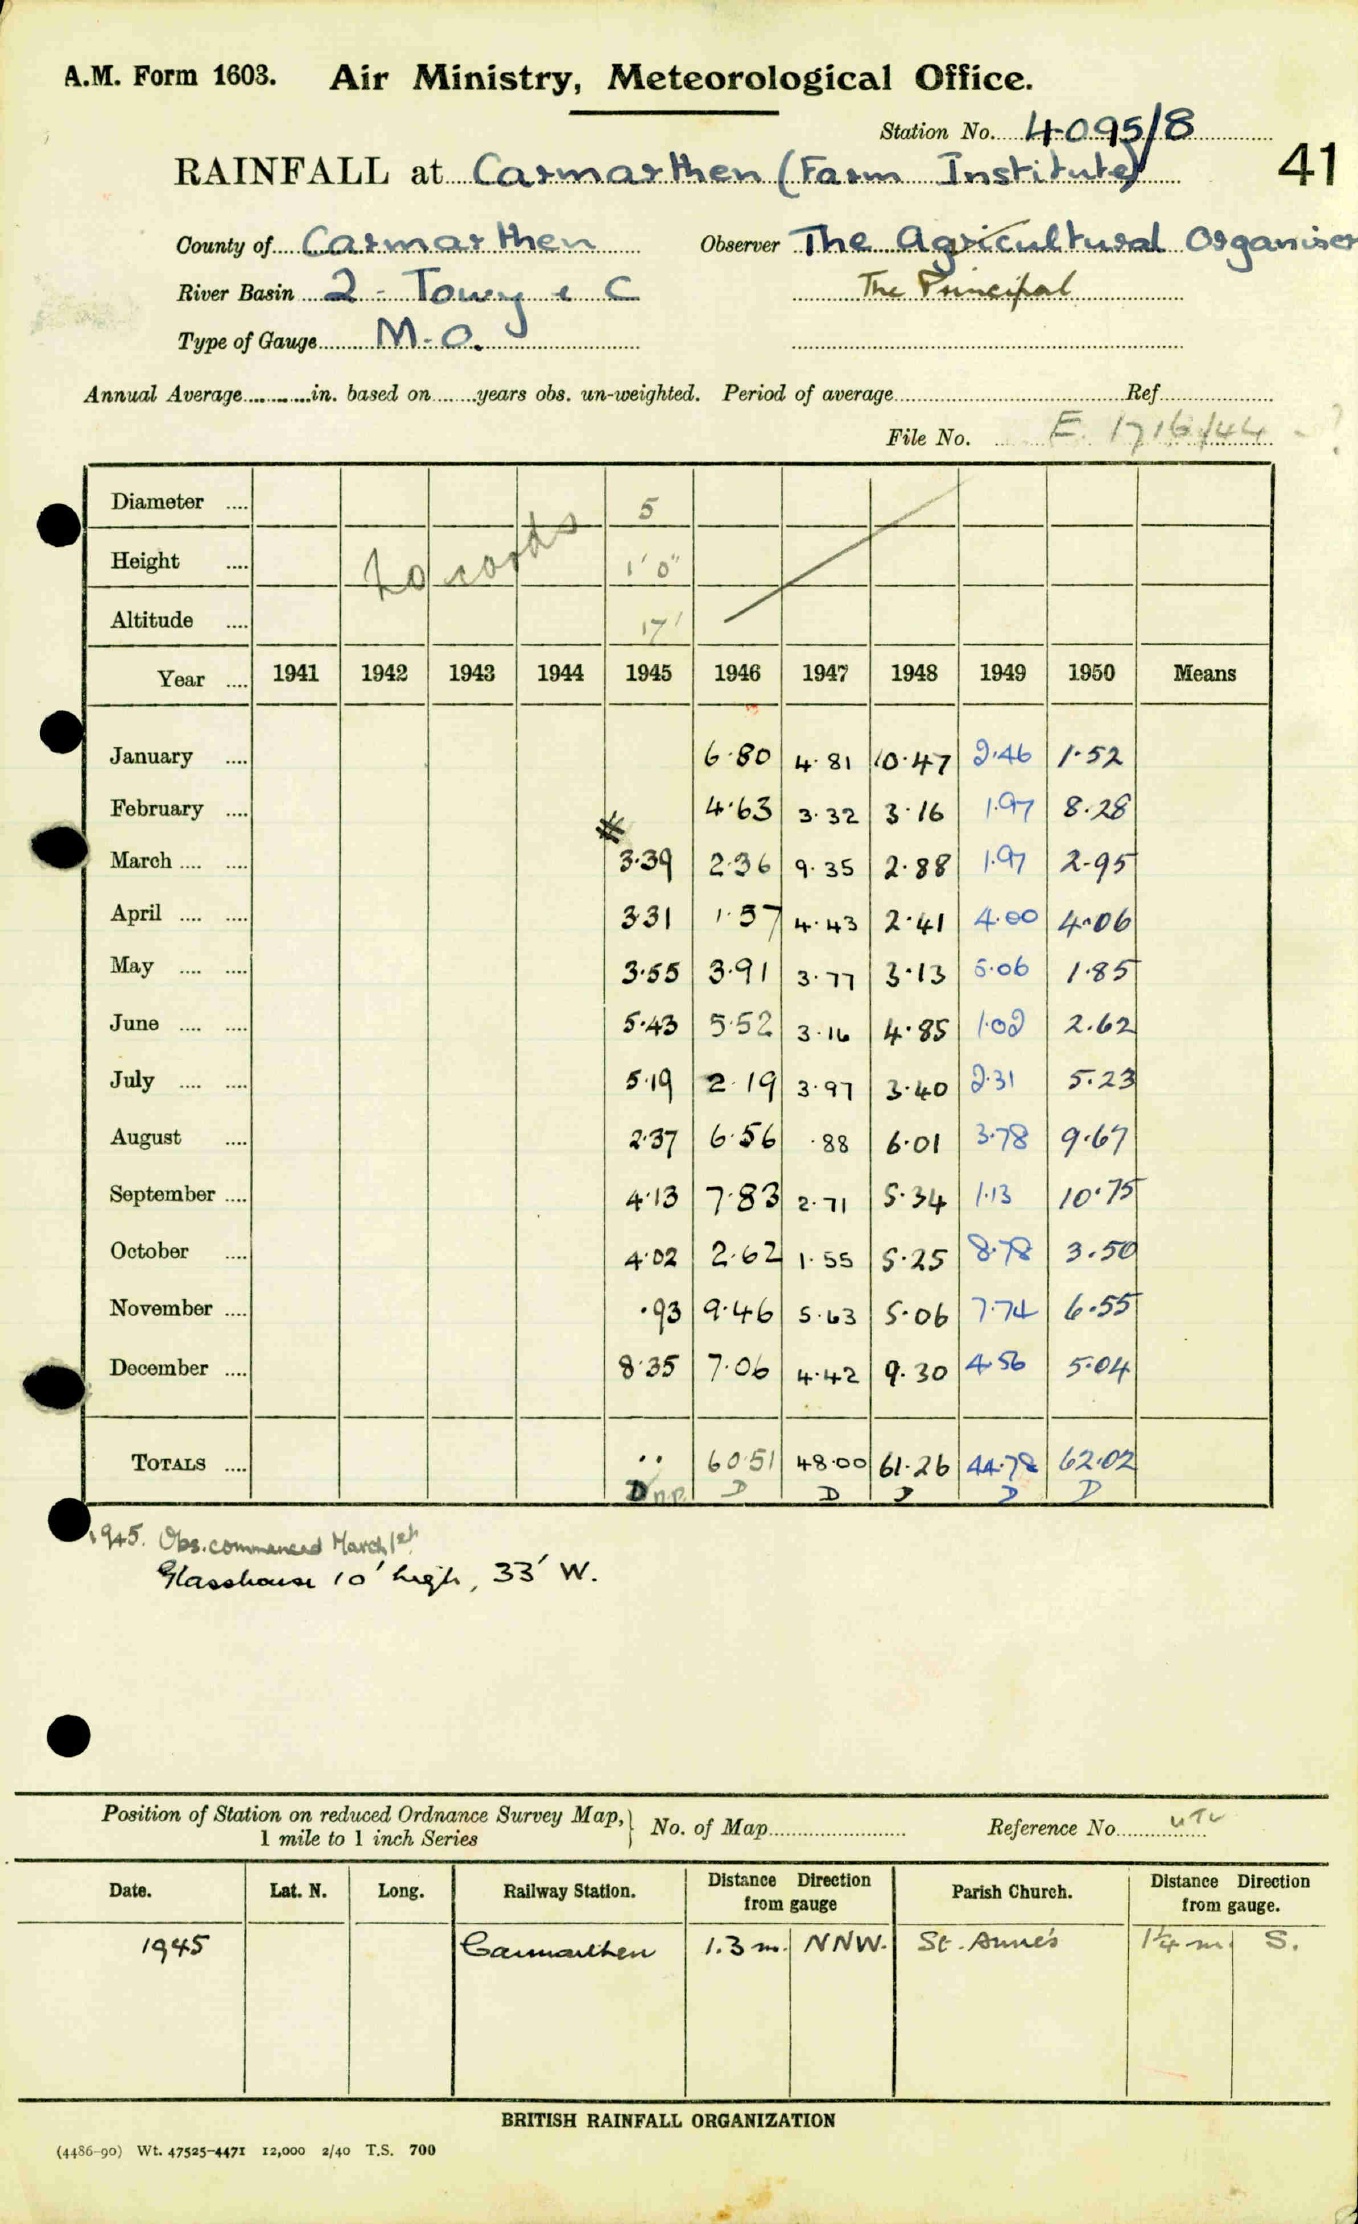 A.M. Form 1603. Air Ministry, Meteorological Office.
Station No. 4095/8
41
RAINFALL at Carmarthen (Farm Institute)
County of Carmarthen Observer The Agricultural Organiser
River Basin 2 - Towy & C The Principal
Type of Gauge M.O.
Annual Average in. based on years obs. un-weighted. Period of average Ref
File No. E. 1716/44 - ?
Diameter .... 5
Height .... 1' 0"
Altitude .... 17'
Year .... 1941 1942 1943 1944 1945 1946 1947 1948 1949 1950 Means
January .... 6.80 4.81 10.47 2.46 1.52
February .... 4.63 3.32 3.16 1.97 8.28
March .... .... 3.39 2.36 9.35 2.88 1.97 2.95
April .... .... 3.31 1.57 4.43 2.41 4.00 4.06
May .... .... 3.55 3.91 3.77 3.13 5.06 1.85
June .... .... 5.43 5.52 3.16 4.85 1.02 2.62
July .... .... 5.19 2.19 3.97 3.40 2.31 5.23
August .... 2.37 6.56 .88 6.01 3.78 9.67
September .... 4.13 7.83 2.71 5.34 1.13 10.75
October .... 4.02 2.62 1.55 5.25 8.78 3.50
November .... .93 9.46 5.63 5.06 7.74 6.55
December .... 8.35 7.06 4.42 9.30 4.56 5.04
TOTALS .... .. 60.51 48.00 61.26 44.78 62.02
D n.p. D D D D D
1945. Obs. commenced March 1st.
Glasshouse 10' high, 33' W.
Position of Station on reduced Ordnance Survey Map, 1 mile to 1 inch Series No. of Map Reference No.
Date. Lat. N. Long. Railway Station. Distance Direction from gauge Parish Church. Distance Direction from gauge.
1945 Carmarthen 1.3 m. NNW. St. Anne's 1¼ m. S.
BRITISH RAINFALL ORGANIZATION
(4486-90) Wt. 47525-4471 12,000 2/40 T.S. 700